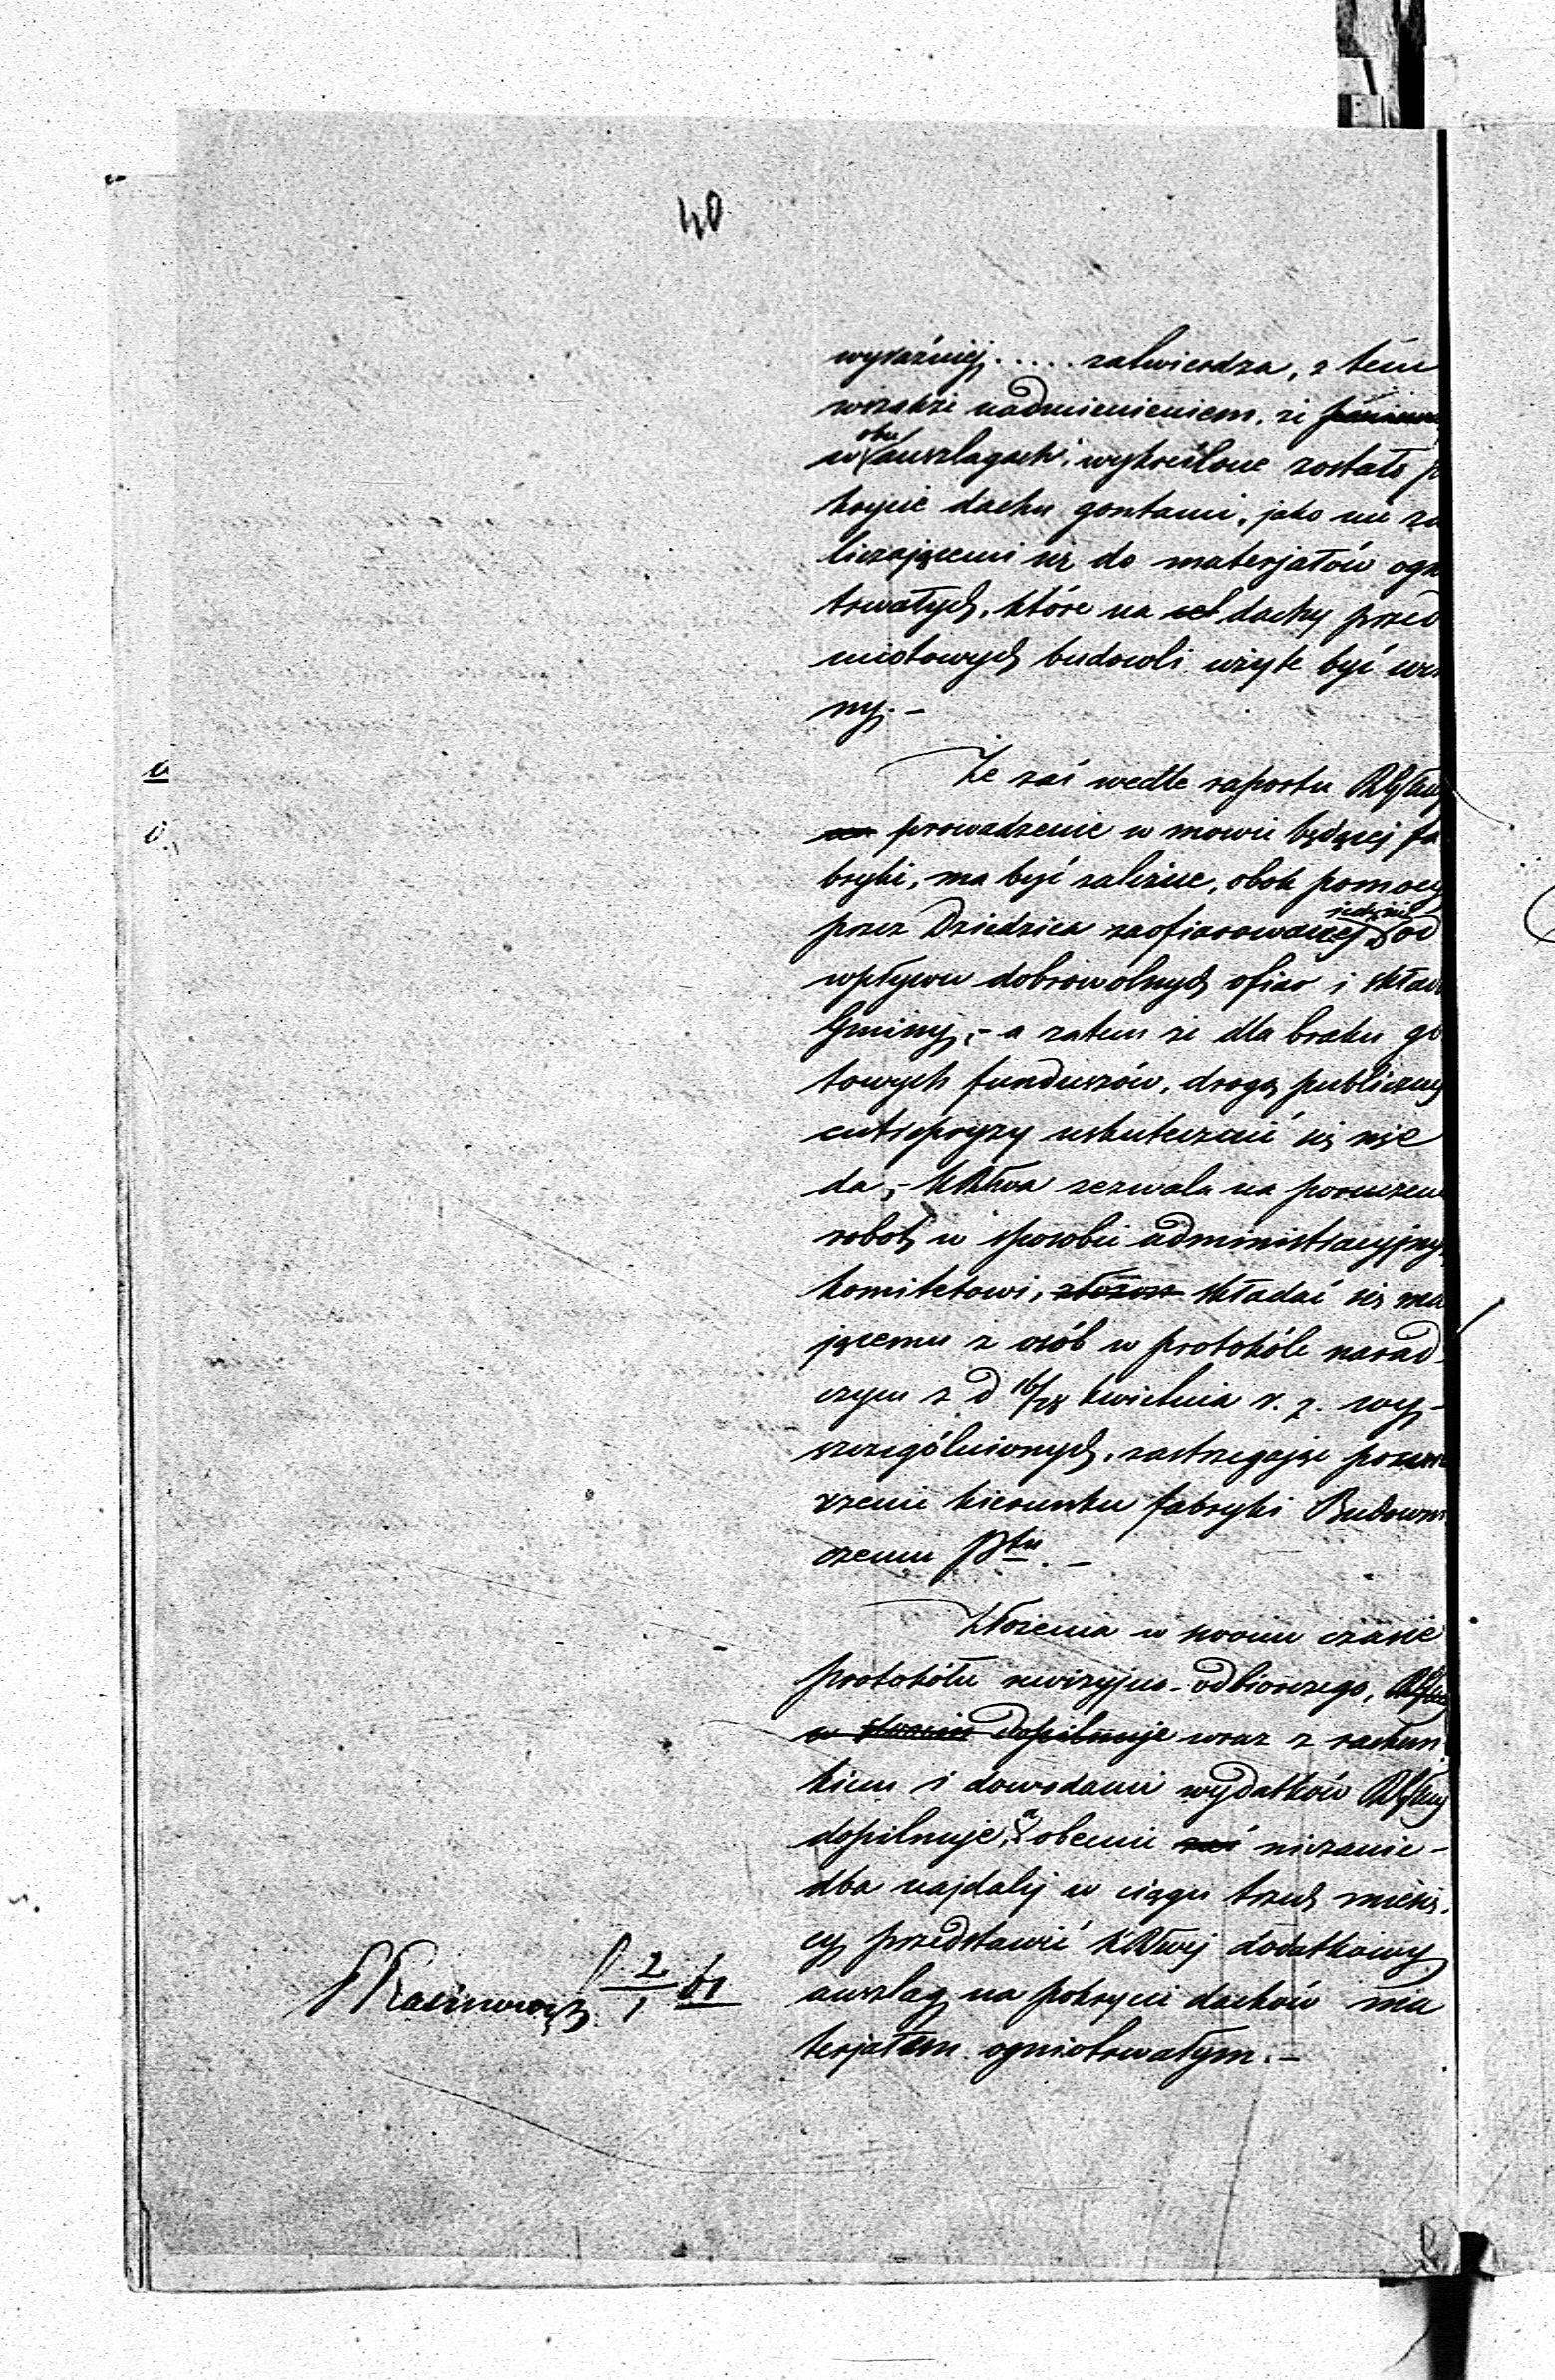 40
wyraźniej ..... zatwierdza, z tém
wszakże nadmienieniem, że
w obu anszlagach, wykreślone zostało p
krycie dachu gontami, jako nie za
liczającemi się do materjałów ogn
trwałych, które na dachy przed
miotowych budowli użyte być win
ny. –
Że zaś wedle raportu
prowadzenie w mowie będącej fa
bryki, ma być zależne, obok pomocy
przez Dziedzica zaofiarowanej, jedynie od
wpływu dobrowolnych ofiar i skład
Gminy, – a zatem że dla braku go
towych funduszów, drogą publiczny
entrepryzy uskutecznić się nie
da, – KRtwa zezwala na poruczen
robot w sposobie administracyjny
komitetowi, składać się ma
jącemu z osób w protokóle narad
czym z d 16/28 kwietnia r. z. wy-
szczególnionych, zastrzegając powie
rzenie kierunku fabryki Budowni
czemu Ptu. –
Złożenia w swoim czasie
protokółu rewizyjno-odbiorczego,
w dopilnuje wraz z rachun
kiem i dowodami wydatków
dopilnuje, a obecnie zaś niezanie-
dba najdalej w ciągu trzech miesię-
cy przedstawić KRtwej dodatkowy
anszlag na pokrycie dachów ma
terjałem ogniotrwałym. –
2/1 61